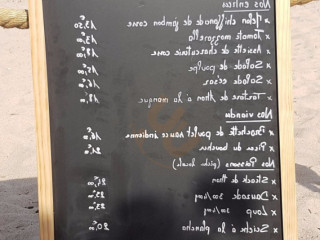 Nos entrées
x Melon chiffonade de jambon corse 19,50€
x Tomate mozzarella 15,-€
x Assiette de charcuterie corse
x Salade de poulpe
x Salade césar
x Tartare de thon à la mangue 19,-€
Nos viandes
x Brochette de poulet sauce indienne 16,-€
x Pièce du boucher 24,-€
Nos Poissons (pêche locale)
x Steack de thon 24,-€
x Daurade 300/400g 23,-€
x Loup 300/400g 23,-€
x Seiche à la plancha 20,-€